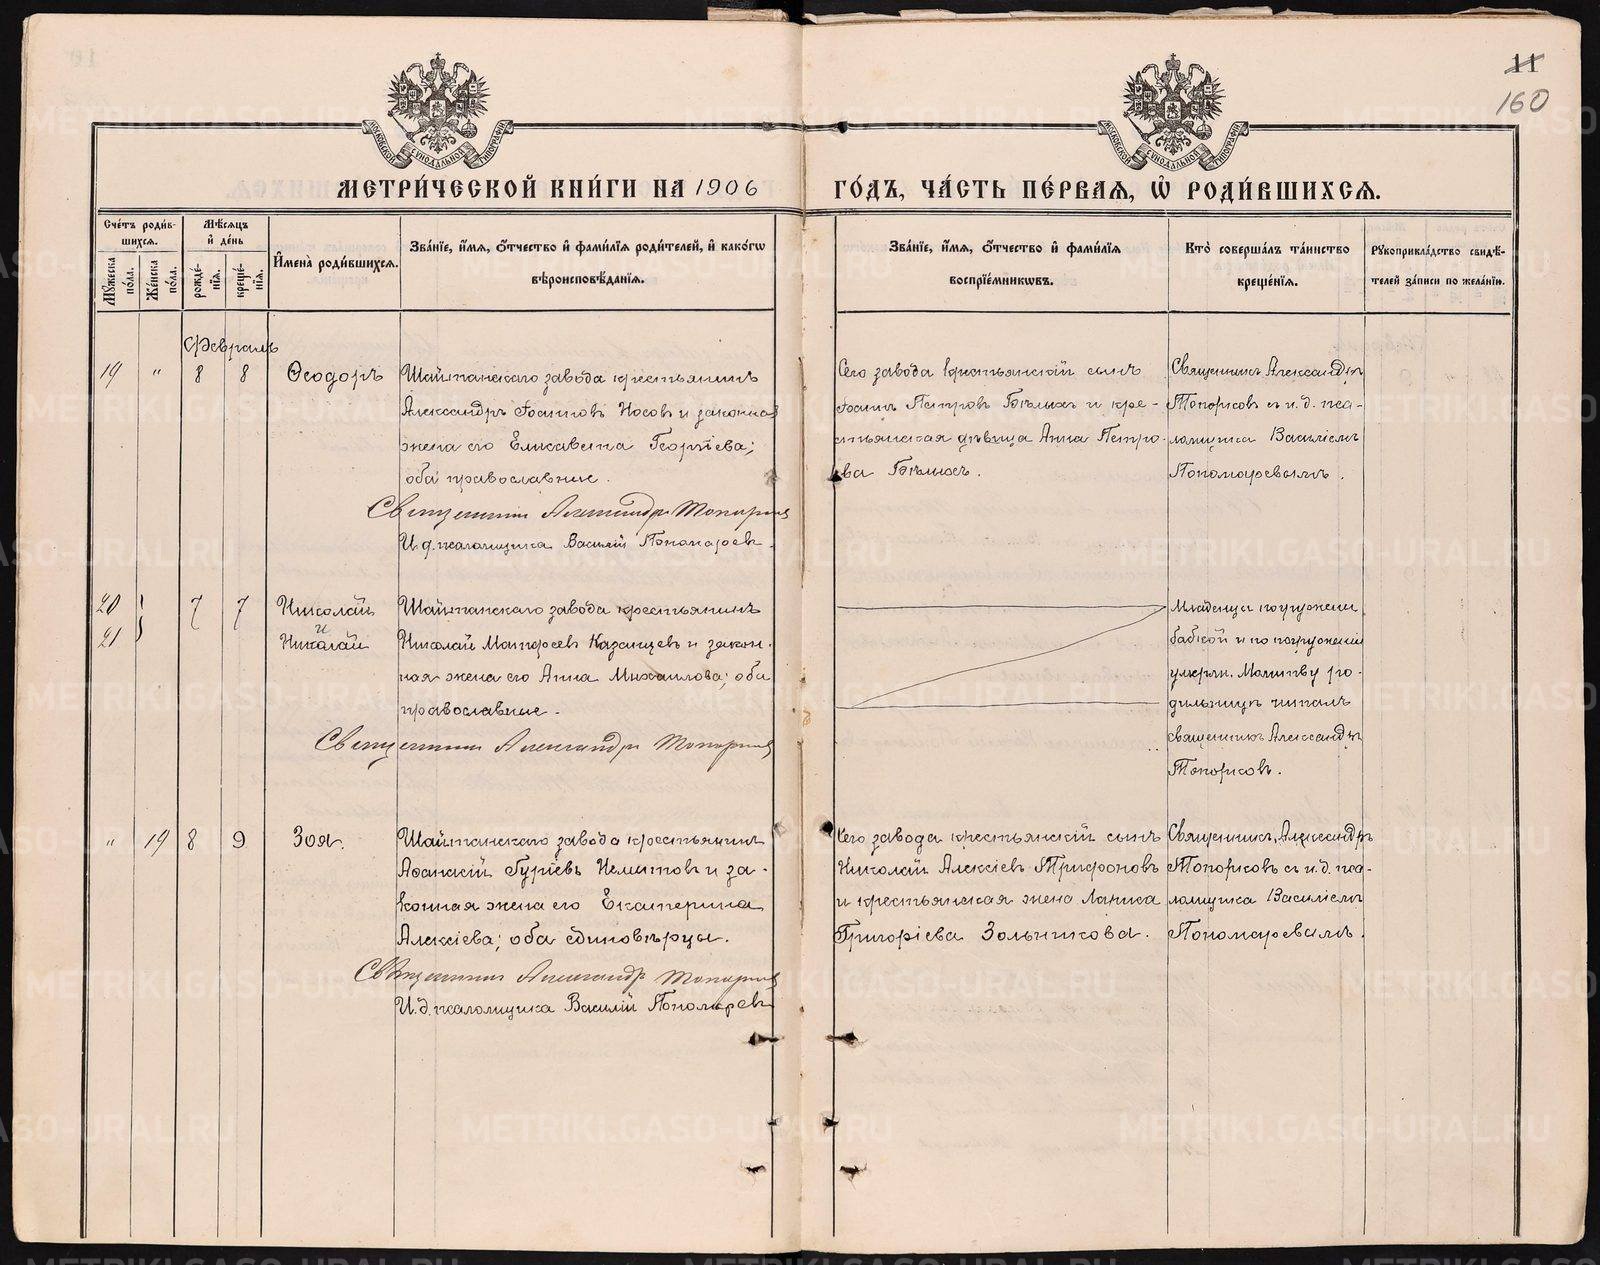 11
160
МЕТРИ́ЧЕСКОЙ КНИ́ГИ НА 1906
ГО́ДЪ, ЧА́СТЬ ПЕ́РВАЯ, Ѽ РОДИ́ВШИХСЯ.
Сче́тъ роди́в-
шихся.
Мꙋ́жеска по́ла.
Же́нска по́ла.
Мѣ́сяцъ
и҆ де́нь
рожде́-
нїѧ.
креще́-
нїѧ.
И҆мена̀ роди́вшихся.
Зва́нїе, и҆́мя, ѻ҆́тчество и҆ фамилїя роди́телей, и҆ како́гѡ
вѣроисповѣ́данїя.
Зва́нїе, и҆́мя, ѻ҆́тчество и҆ фами́лїя
воспрїе́мникѡвъ.
Кто̀ соверша́лъ та́инство
креще́нїя.
Рꙋкоприкла́дство свидѣ́-
телей за́писи по жела́нїю.
Февраль
19 " 8 8 Ѳеодоръ
Шайтанскаго завода крестьянинъ
Александръ Іоанновъ Носовъ и законная
жена его Елисавета Георгіева;
оба православные.
Священникъ Александръ Топорковъ
И.д. псаломщика Василій Пономаревъ.
Сего завода крестьянскій сынъ
Іоаннъ Петровъ Бѣлыхъ и кре-
стьянская дѣвица Анна Петро-
ва Бѣлыхъ.
Священникъ Александръ
Топорковъ съ и.д. пса-
ломщика Василіемъ
Пономаревымъ.
20
21
7 7 Николай
и
Николай
Шайтанскаго завода крестьянинъ
Николай Матѳеевъ Казанцевъ и закон-
ная жена его Анна Михаилова; оба
православные.
Священникъ Александръ Топорковъ
Младенцы погружены
бабкой и по погруженіи
умерли. Молитву ро-
дильницѣ читалъ
священникъ Александръ
Топорковъ.
" 19 8 9 Зоя.
Шайтанскаго завода крестьянинъ
Аѳанасій Гуріевъ Немытовъ и за-
конная жена его Екатерина
Алексіева; оба единовѣрцы.
Священникъ Александръ Топорковъ
И.д. псаломщика Василій Пономаревъ
Сего завода крестьянскій сынъ
Николай Алексіевъ Трифоновъ
и крестьянская жена Лариса
Григоріева Зольникова.
Священникъ Александръ
Топорковъ съ и.д. пса-
ломщика Василіемъ
Пономаревымъ.
METRIKI.GASO-URAL.RU